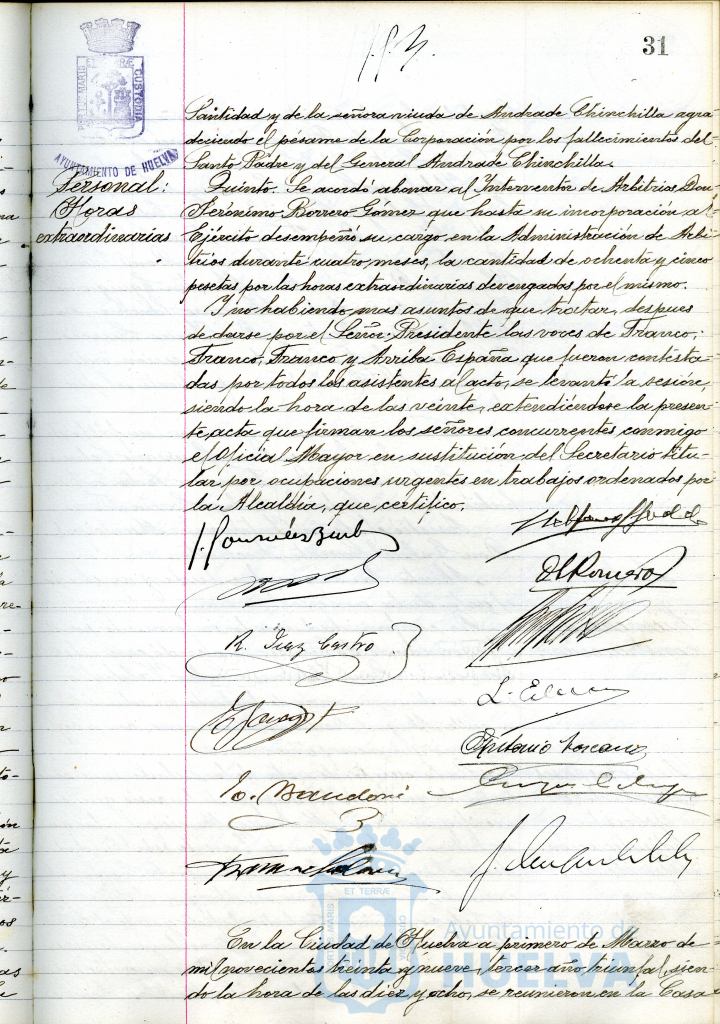 31
PORTUS MARIS ET TERRÆ CUSTODIA
AYUNTAMIENTO DE HUELVA
Personal:
Horas
extraordinarias
Santidad y de la señora viuda de Andrade Chinchilla agra
deciendo el pésame de la Corporación por los fallecimientos del
Santo Padre y del General Andrade Chinchilla.
Quinto. Se acordó abonar al Interventor de Arbitrios Don
Jerónimo Borrero Gómez que hasta su incorporación al
Ejército desempeñó su cargo en la Administración de Arbi-
trios durante cuatro meses, la cantidad de ochenta y cinco
pesetas por las horas extraordinarias devengadas por el mismo.
Y no habiendo mas asuntos de que tratar, despues
de darse por el Señor Presidente las voces de Franco,
Franco, Franco y Arriba España que fueron contesta-
das por todos los asistentes al acto, se levantó la sesión,
siendo la hora de las veinte, extendiéndose la presen-
te acta que firman los señores concurrentes conmigo
el Oficial Mayor en sustitución del Secretario titu-
lar, por ocupaciones urgentes en trabajos ordenados por
la Alcaldía, que certifico.
R. Diaz Castro
Antonio Toscano
En la Ciudad de Huelva a primero de Marzo de
mil novecientos treinta y nueve, tercer año triunfal, sien-
do la hora de las diez y ocho, se reunieron en la Casa
ET TERRÆ
Ayuntamiento de
HUELVA